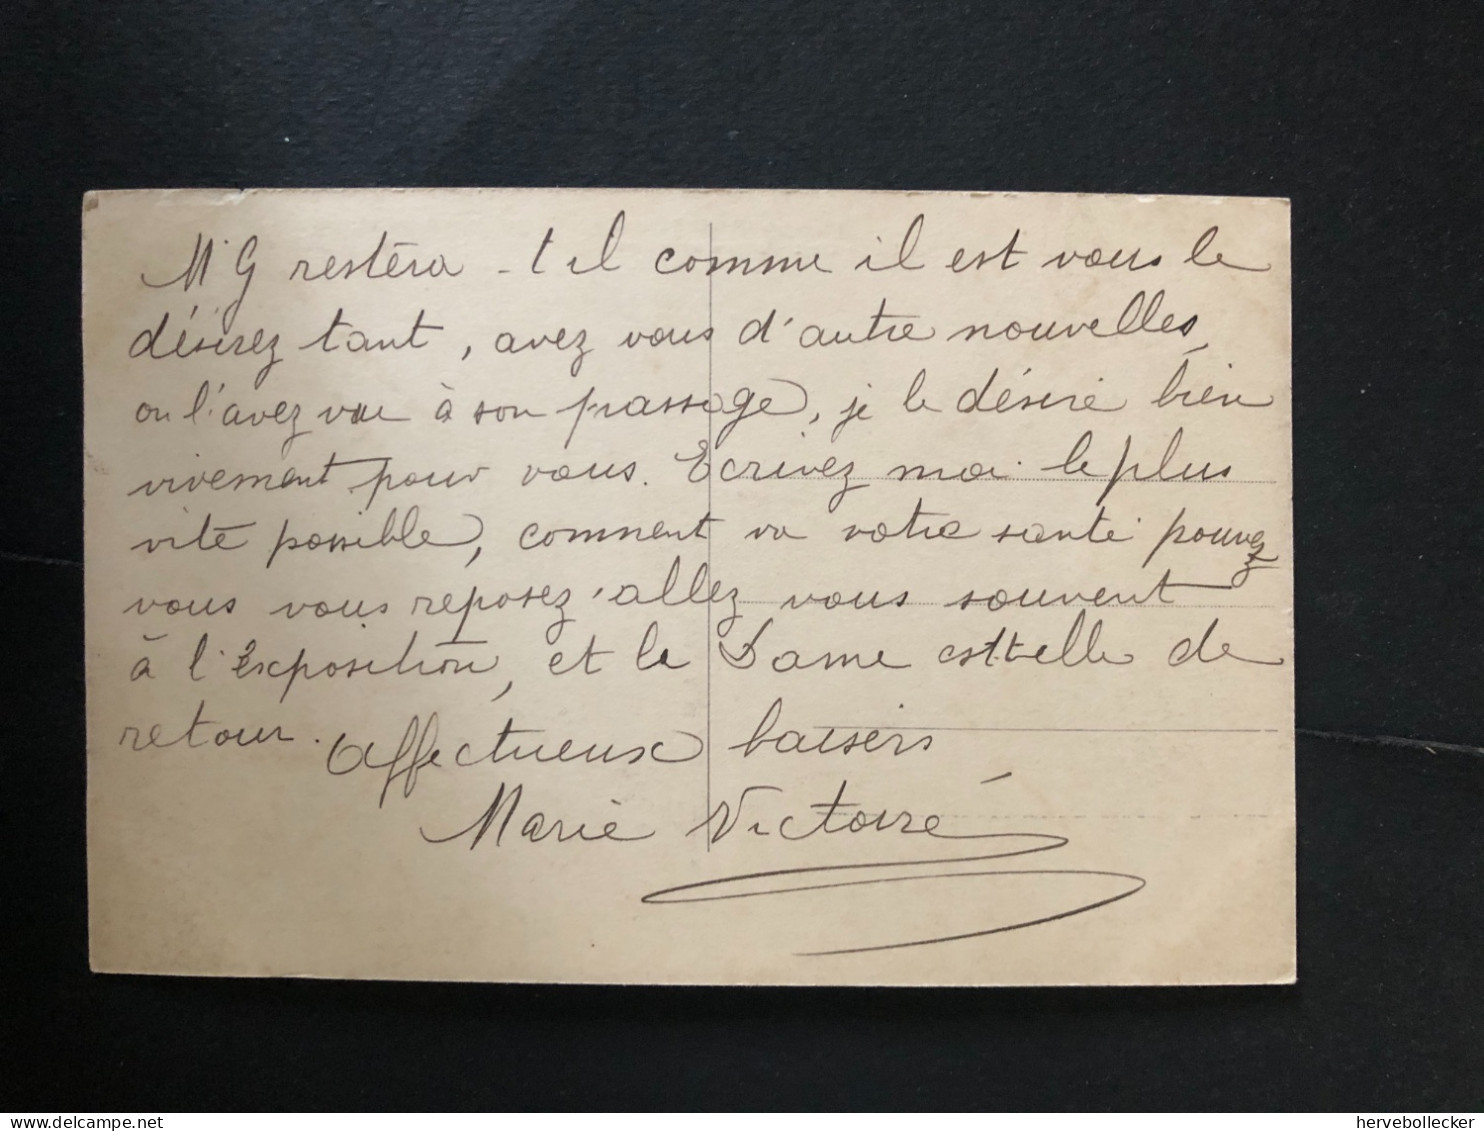 M. G restéra - t il comme il est vous le
désirez tant, avez vous d'autre nouvelles,
ou l'avez vue à son passage, je le désire bien
vivement pour vous. Ecrivez moi le plus
vite possible, comment va votre santé pouvez
vous vous reposez, allez vous souvent
à l'Exposition, et la Dame est telle de
retour. Affectueux baisers
Marie Victoire
hervebollecker